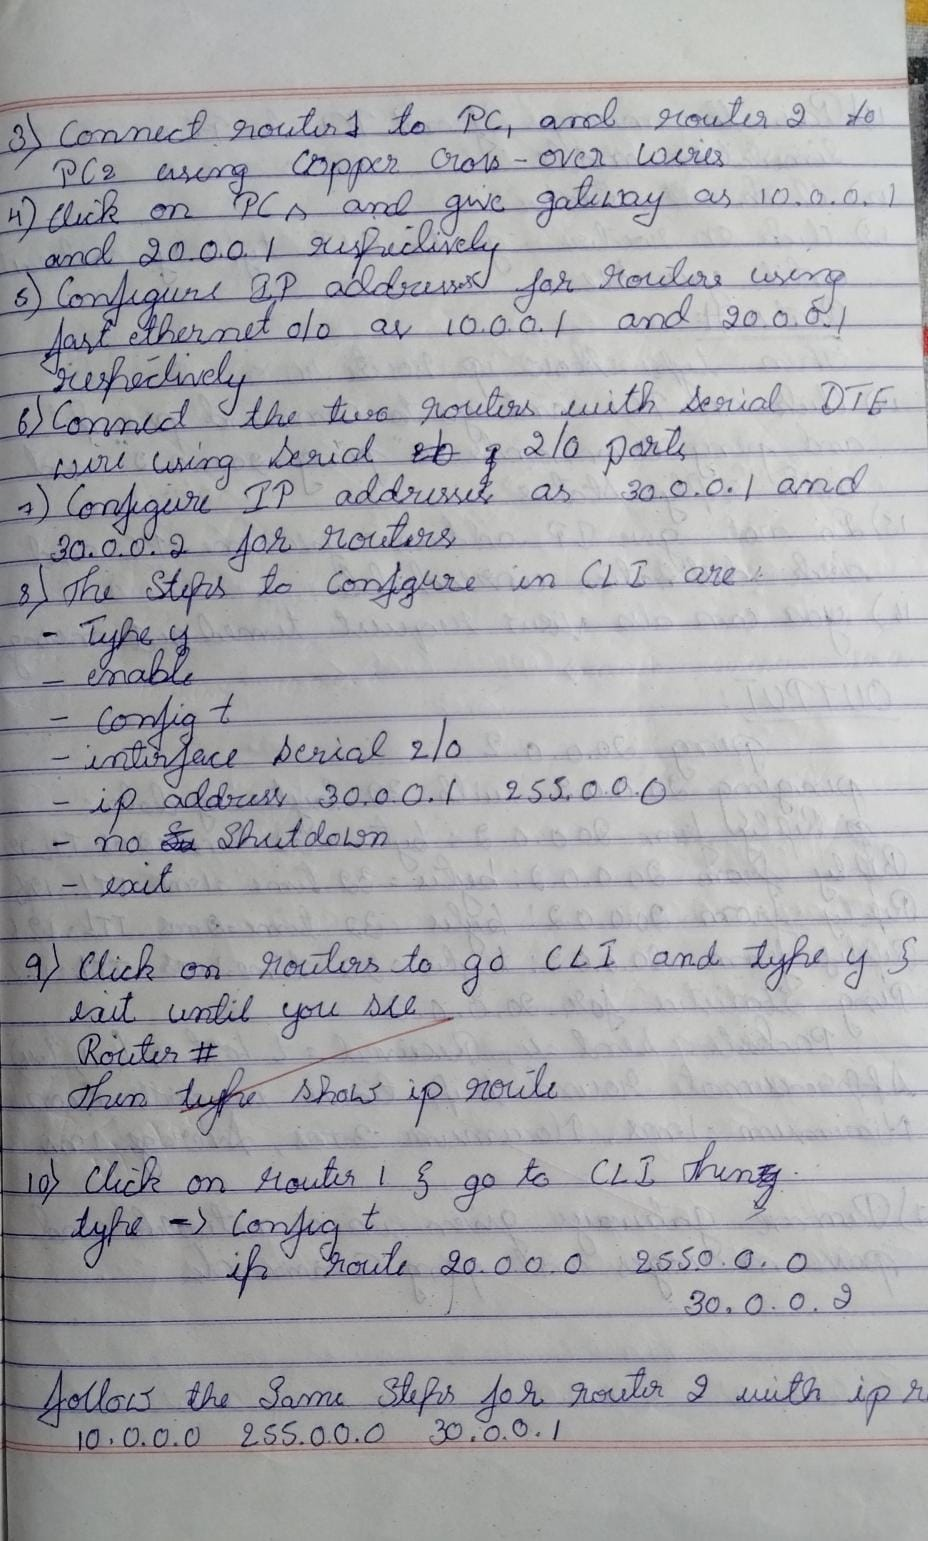 3) Connect router 1 to PC1 and router 2 to
PC2 using Copper Cross-over wires
4) Click on PCs and give gateway as 10.0.0.1
and 20.0.0.1 respectively
5) Configure IP addresses for routers using
fast ethernet 0/0 as 10.0.0.1 and 20.0.0.1
respectively
6) Connect the two routers with Serial DTE
wire using Serial 2/0 ports
7) Configure IP addresses as 30.0.0.1 and
30.0.0.2 for routers
8) The Steps to Configure in CLI are:
- Type y
- enable
- Config t
- interface Serial 2/0
- ip address 30.0.0.1 255.0.0.0
- no Shutdown
- exit
9) Click on routers to go CLI and type y &
exit until you see
Router #
Then type show ip route
10) Click on router 1 & go to CLI then
type -> Config t
ip route 20.0.0.0 2550.0.0
30.0.0.2
follow the Same Steps for router 2 with ip r
10.0.0.0 255.0.0.0 30.0.0.1